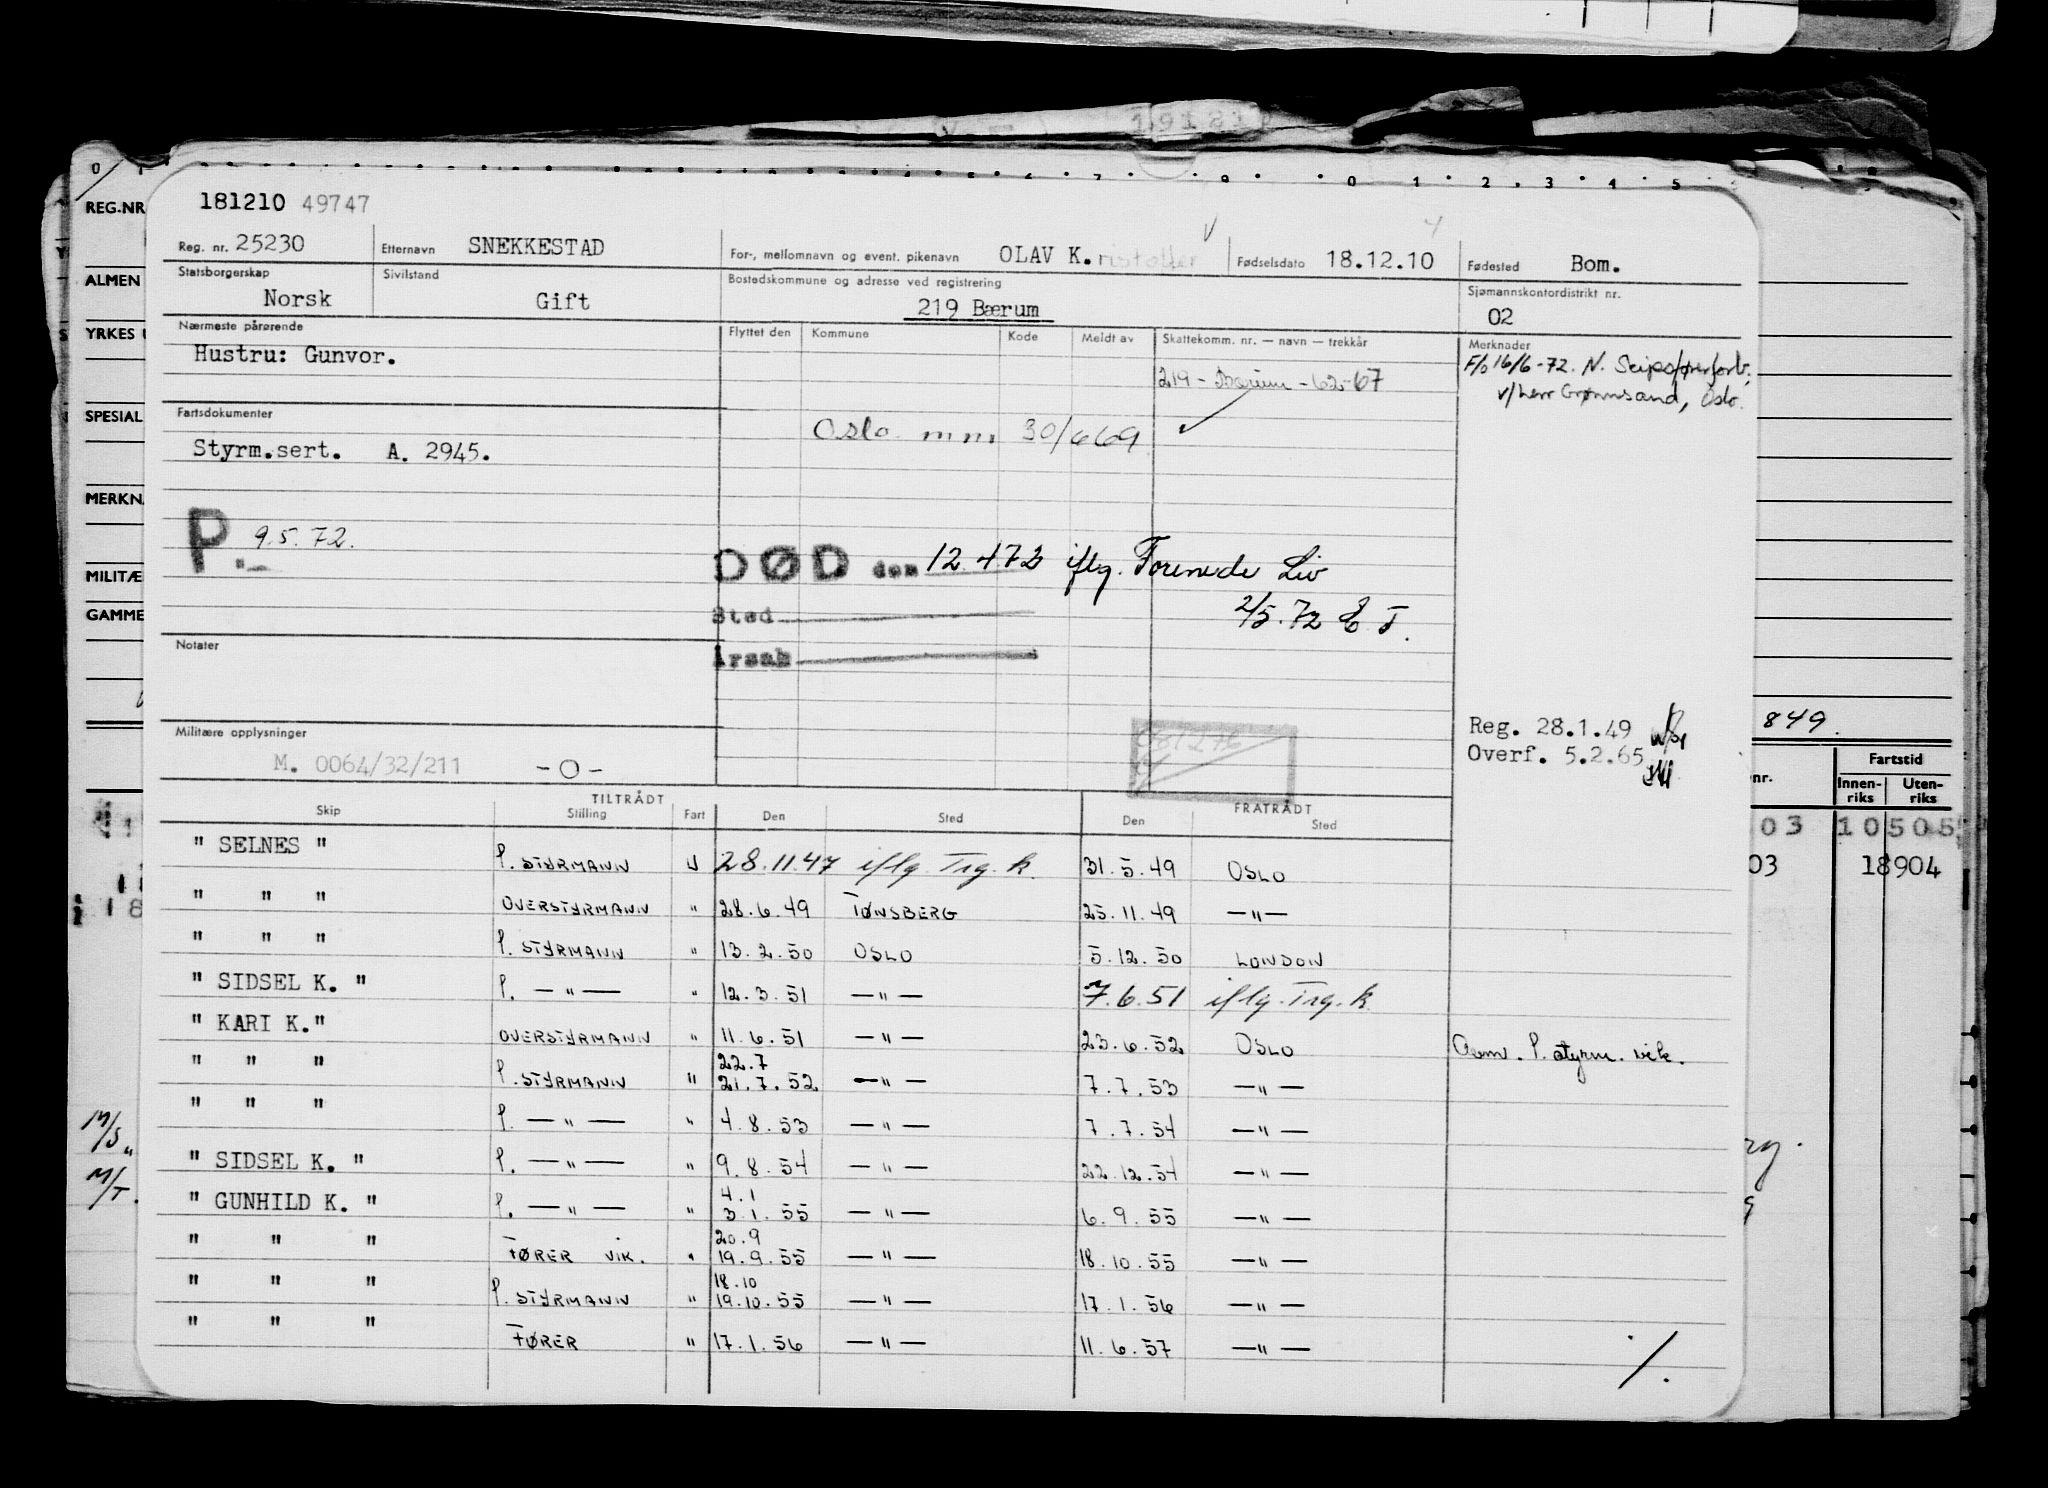 19121
0 1 7 9 0 1 2 3 4 5
181210 49747
REG.NR
Reg. nr. 25230 Etternavn SNEKKESTAD For-, mellomnavn og event. pikenavn OLAV K.ristoffer Fødselsdato 18.12.10 Fødested Bom.
Statsborgerskap Norsk Sivilstand Gift Bostedskommune og adresse ved registrering 219 Bærum Sjømannskontordistrikt nr. 02
ALMEN
YRKES
Nærmeste pårørende Flyttet den Kommune Kode Meldt av Skattekomm. nr. — navn — trekkår Merknader
Hustru: Gunvor.
F/o 16/6-72. N. Skipsførerforb.
219 - Bærum - 62-67
v/herr Grønnsand, Oslo.
SPESIAL
Fartsdokumenter
Oslo mm 30/669
Styrm.sert. A. 2945.
MERKN
P. 9.5.72.
DØD den 12.472 iflg. Forenede Liv
MILITÆ
Sted
2/5.72 E.J.
GAMME
Notater
Årsak
Reg. 28.1.49
849.
Militære opplysninger
Overf. 5.2.65
M. 0064/32/211 -O-
nr. Fartstid
Innen-riks Uten-riks
TILTRÅDT FRATRÅDT
Skip Stilling Fart Den Sted Den Sted
03 10505
" SELNES " 1. STYRMANN U 28.11.47 iflg. Trg. k. 31.5.49 OSLO
03 18904
" " " OVERSTYRMANN " 28.6.49 TØNSBERG 25.11.49 —"—
" " " 1. STYRMANN " 13.2.50 OSLO 5.12.50 LONDON
" SIDSEL K. " 1. —"— " 12.3.51 —"— 7.6.51 iflg. Trg. k.
" KARI K." OVERSTYRMANN " 11.6.51 —"— 23.6.52 OSLO Anm. 1. styrm. vik.
22.7
" " " 1. STYRMANN " 21.7.52 —"— 7.7.53 —"—
" " " 1. —"— " 4.8.53 —"— 7.7.54 —"—
M/S "
" SIDSEL K. " 1. —"— " 9.8.54 —"— 22.12.54 —"—
M/T.
4.1
" GUNHILD K. " 1. —"— " 3.1.55 —"— 6.9.55 —"—
20.9
" " " FØRER VIK. " 19.9.55 —"— 18.10.55 —"—
18.10
" " " 1. STYRMANN " 19.10.55 —"— 17.1.56 —"—
" " " FØRER " 17.1.56 —"— 11.6.57 —"—
./.